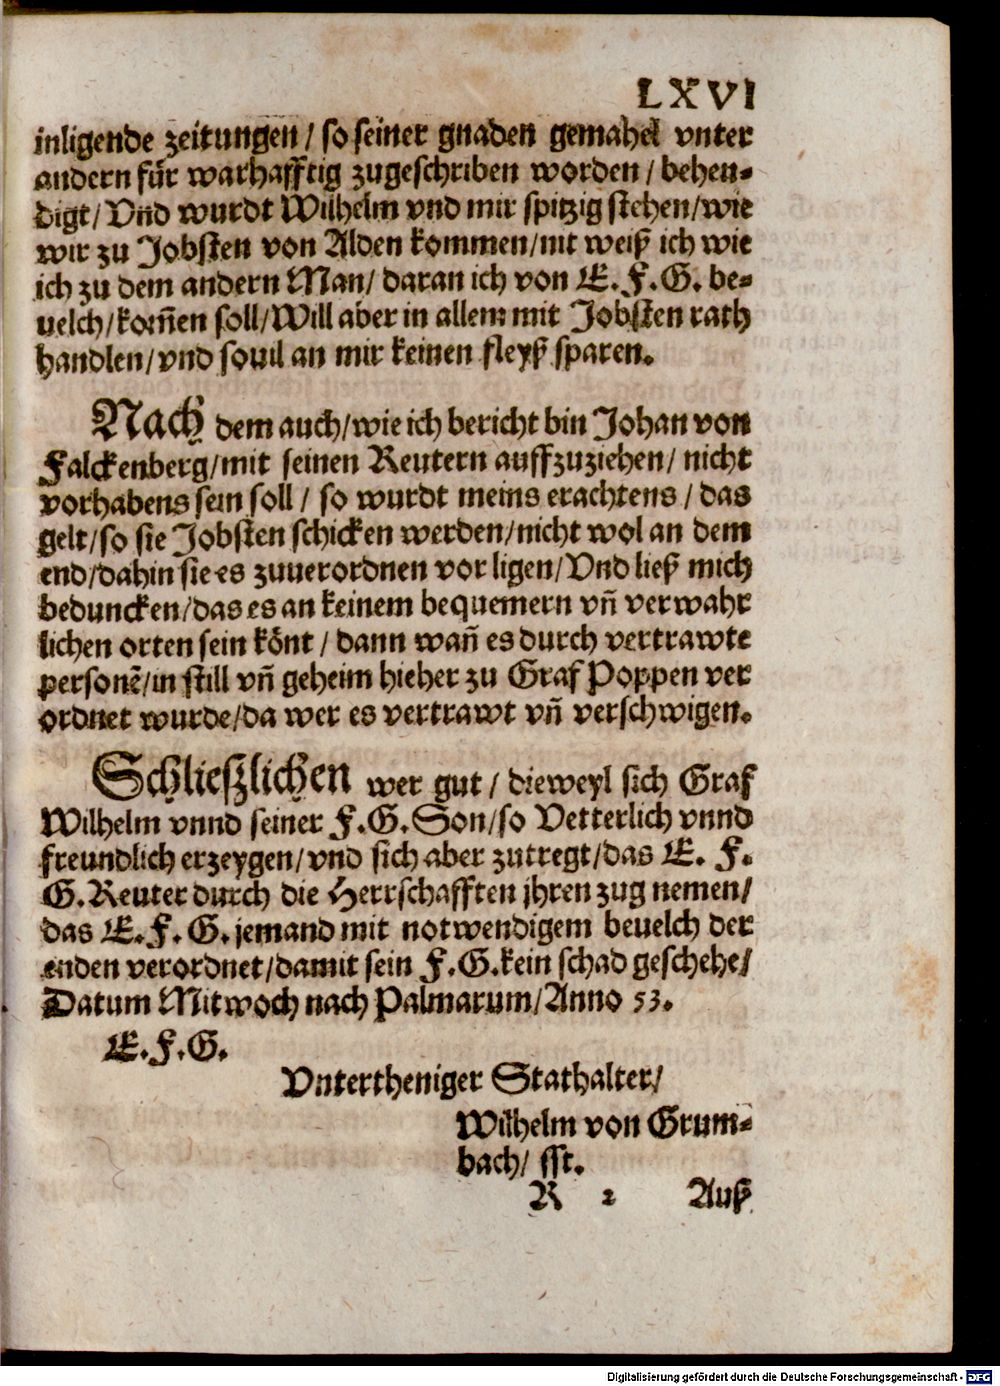 LXVI
inligende zeitungen / so seiner gnaden gemahel vnter
andern für warhafftig zugeschriben worden / behen-
digt / Vnd wurdt Wilhelm vnd mir spitzig stehen / wie
wir zu Jobsten von Alden kommen / nit weiß ich wie
ich zu dem andern Man / daran ich von E. F. G. be-
uelch / kom̃en soll / Will aber in allem mit Jobsten rath
handlen / vnd souil an mir keinen fleyß sparen.
Nach dem auch / wie ich bericht bin Johan von
Falckenberg / mit seinen Reutern auffzuziehen / nicht
vorhabens sein soll / so wurdt meins erachtens / das
gelt / so sie Jobsten schicken werden / nicht wol an dem
end / dahin sie es zuuerordnen vor ligen / Vnd ließ mich
beduncken / das es an keinem bequemern vñ verwahr
lichen orten sein könt / dann wañ es durch vertrawte
personẽ / in still vñ geheim hieher zu Graf Poppen ver
ordnet wurde / da wer es vertrawt vñ verschwigen.
Schlieszlichen wer gut / dieweyl sich Graf
Wilhelm vnnd seiner F. G. Son / so Vetterlich vnnd
freundlich erzeygen / vnd sich aber zutregt / das E. F.
G. Reuter durch die Herrschafften jhren zug nemen /
das E. F. G. jemand mit notwendigem beuelch der
enden verordnet / damit sein F. G. kein schad geschehe /
Datum Mitwoch nach Palmarum / Anno 53.
E. F. G.
Vntertheniger Stathalter /
Wilhelm von Grum-
bach / sst.
R 2 Auß
Digitalisierung gefördert durch die Deutsche Forschungsgemeinschaft - DFG